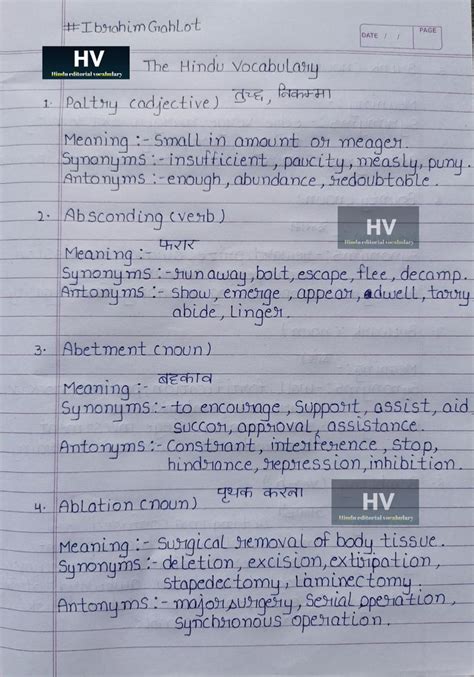 #Ibrahim Gahlot
DATE / / PAGE
HV
Hindu editorial vocabulary
The Hindu Vocabulary
1. Paltry (adjective) तुच्छ, निकम्मा
Meaning :- Small in amount or meager.
Synonyms :- insufficient, paucity, measly, puny.
Antonyms :- enough, abundance, redoubtable.
2. Absconding (verb)
HV
Hindu editorial vocabulary
Meaning :- फरार
Synonyms :- run away, bolt, escape, flee, decamp.
Antonyms :- show, emerge, appear, dwell, tarry
abide, Linger.
3. Abetment (noun)
Meaning :- बहकाव
Synonyms :- to encourage, Support, assist, aid
Succor, approval, assistance.
Antonyms :- Constrant, interference, stop,
hindrance, repression, inhibition.
4. Ablation (noun) पृथक करना
HV
Hindu editorial vocabulary
Meaning :- Surgical removal of body tissue.
Synonyms :- deletion, excision, extirpation,
Stapedectomy, Laminectomy.
Antonyms :- major surgery, Serial operation,
Synchronous operation.